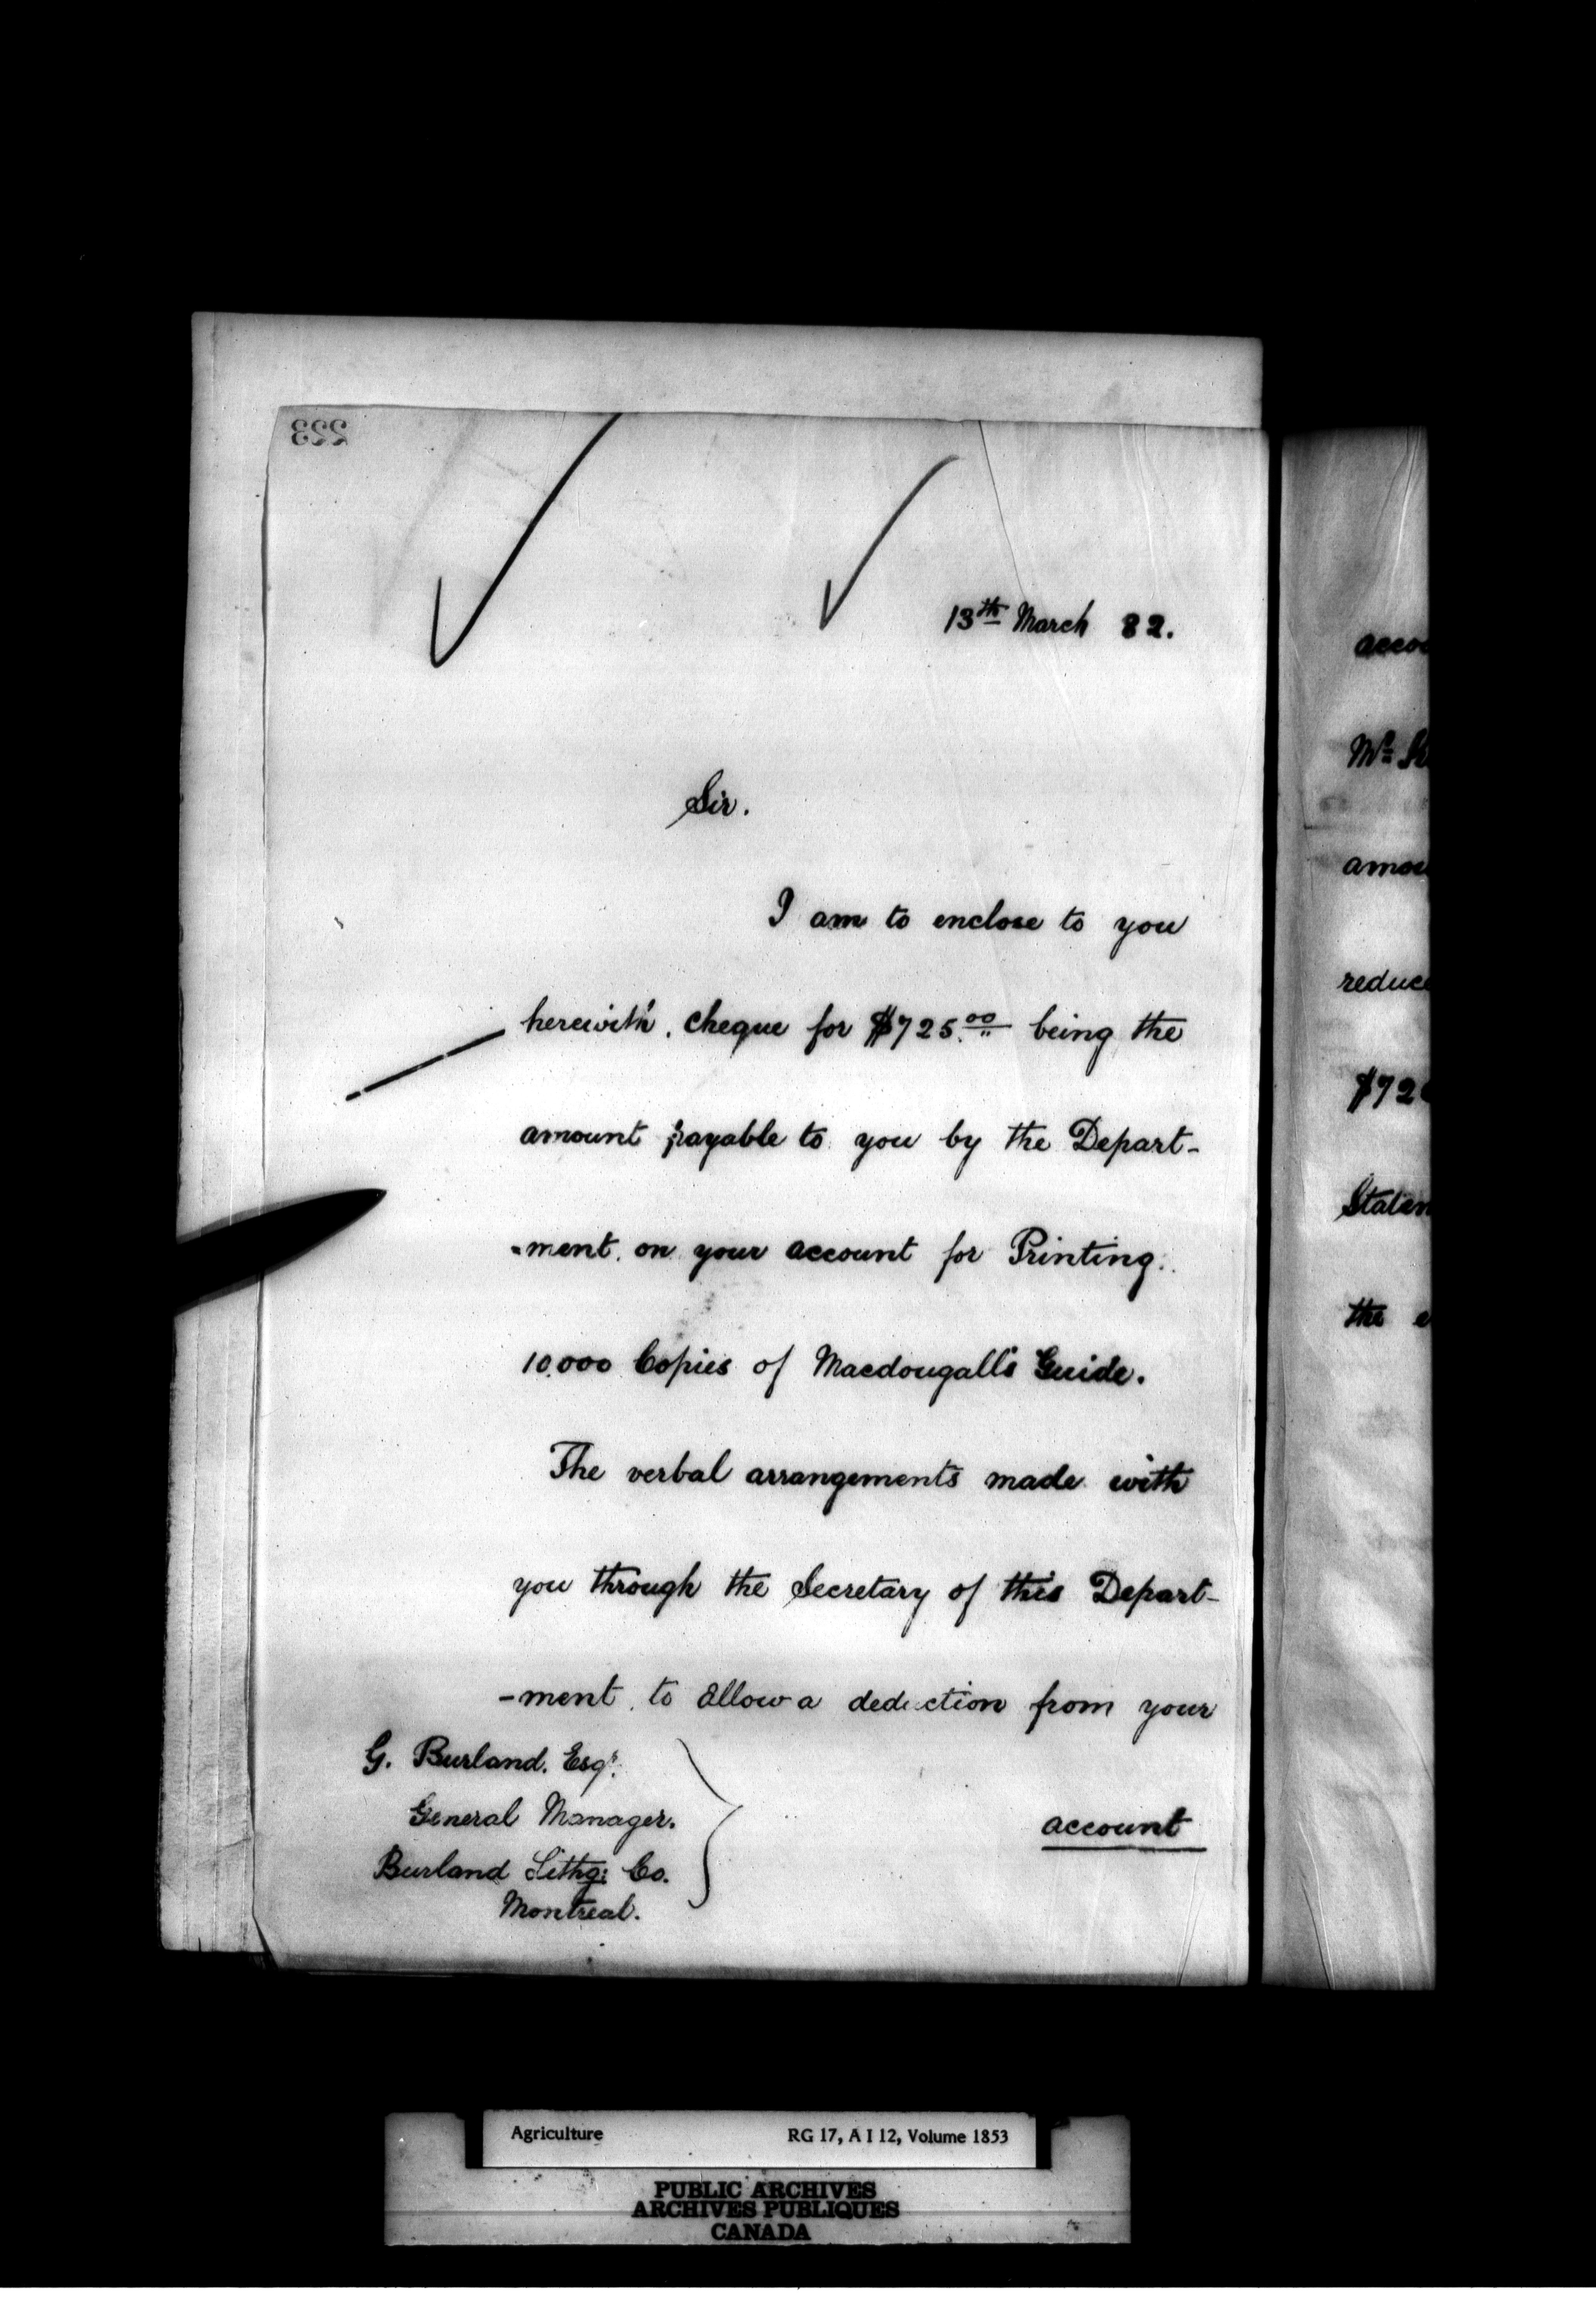 223
13th March 82.
Sir.
I am to enclose to you
herewith. cheque for $725.00 being the
amount payable to you by the Depart-
-ment. on your account for Printing.
10.000 Copies of Macdougall's Guide.
The verbal arrangements made with
you through the Secretary of this Depart-
-ment. to allow a deduction from your
G. Burland. Esqr.
General Manager.
Burland Lithg: Co.
Montreal.
account
reduce
$72
the
Agriculture RG 17, A I 12, Volume 1853
PUBLIC ARCHIVES
ARCHIVES PUBLIQUES
CANADA